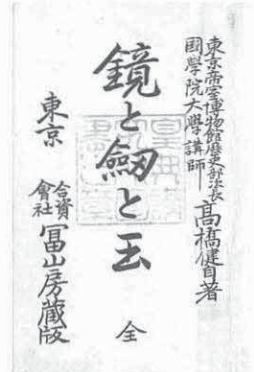 東京帝室博物館歴史部次長
國學院大學講師
高橋健自著
鏡と劔と玉
全
東京
合資
會社
冨山房蔵版